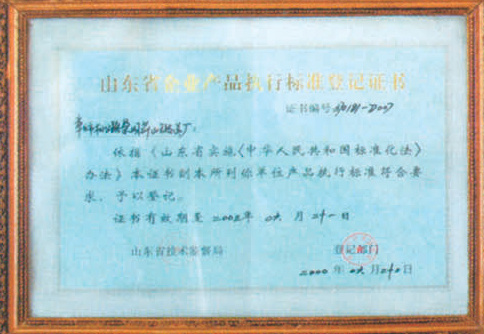 山东省企业产品执行标准登记证书
证书编号
依据《山东省实施〈中华人民共和国标准化法〉
办法》本证书副本所列你单位产品执行标准符合要
求,予以登记。
证书有效期至 二00二年 月 二十一日
山东省技术监督局 登记部门
2000 年 月 日